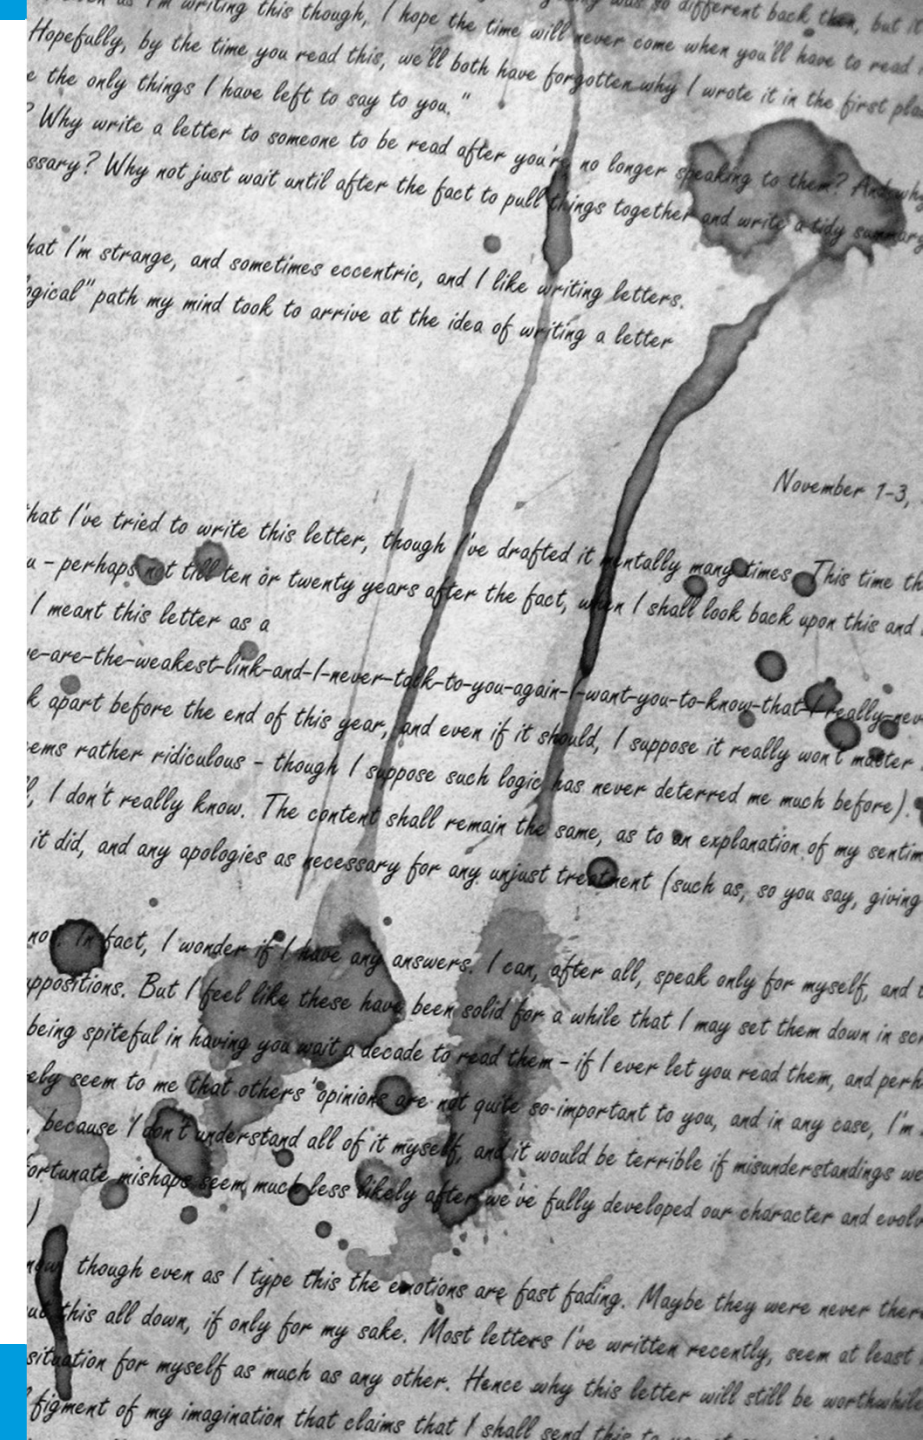 as I'm writing this though, I hope the time will never come when you'll have to read
Hopefully, by the time you read this, we'll both have forgotten why I wrote it in the first
e the only things I have left to say to you."
? Why write a letter to someone to be read after you're no longer speaking to them? And why
ssary? Why not just wait until after the fact to pull things together and write a tidy summary
hat I'm strange, and sometimes eccentric, and I like writing letters.
ogical" path my mind took to arrive at the idea of writing a letter
November 1-3,
that I've tried to write this letter, though I've drafted it mentally many times. This time th
u - perhaps not till ten or twenty years after the fact, when I shall look back upon this and
I meant this letter as a
e-are-the-weakest-link-and-I-never-talk-to-you-again-I-want-you-to-know-that-I-really-nev
k apart before the end of this year, and even if it should, I suppose it really won't matter
ems rather ridiculous - though I suppose such logic has never deterred me much before).
l, I don't really know. The content shall remain the same, as to an explanation of my sentim
it did, and any apologies as necessary for any unjust treatment (such as, so you say, giving
not. In fact, I wonder if I have any answers. I can, after all, speak only for myself, and
uppositions. But I feel like these have been solid for a while that I may set them down in scr
being spiteful in having you wait a decade to read them - if I ever let you read them, and perh
ely seem to me that others' opinions are not quite so important to you, and in any case, I'm
, because I don't understand all of it myself, and it would be terrible if misunderstandings we
fortunate mishaps seem much less likely after we've fully developed our character and evolv
)
now, though even as I type this the emotions are fast fading. Maybe they were never ther
ut this all down, if only for my sake. Most letters I've written recently, seem at least
situation for myself as much as any other. Hence why this letter will still be worthwhile
figment of my imagination that claims that I shall send this to you